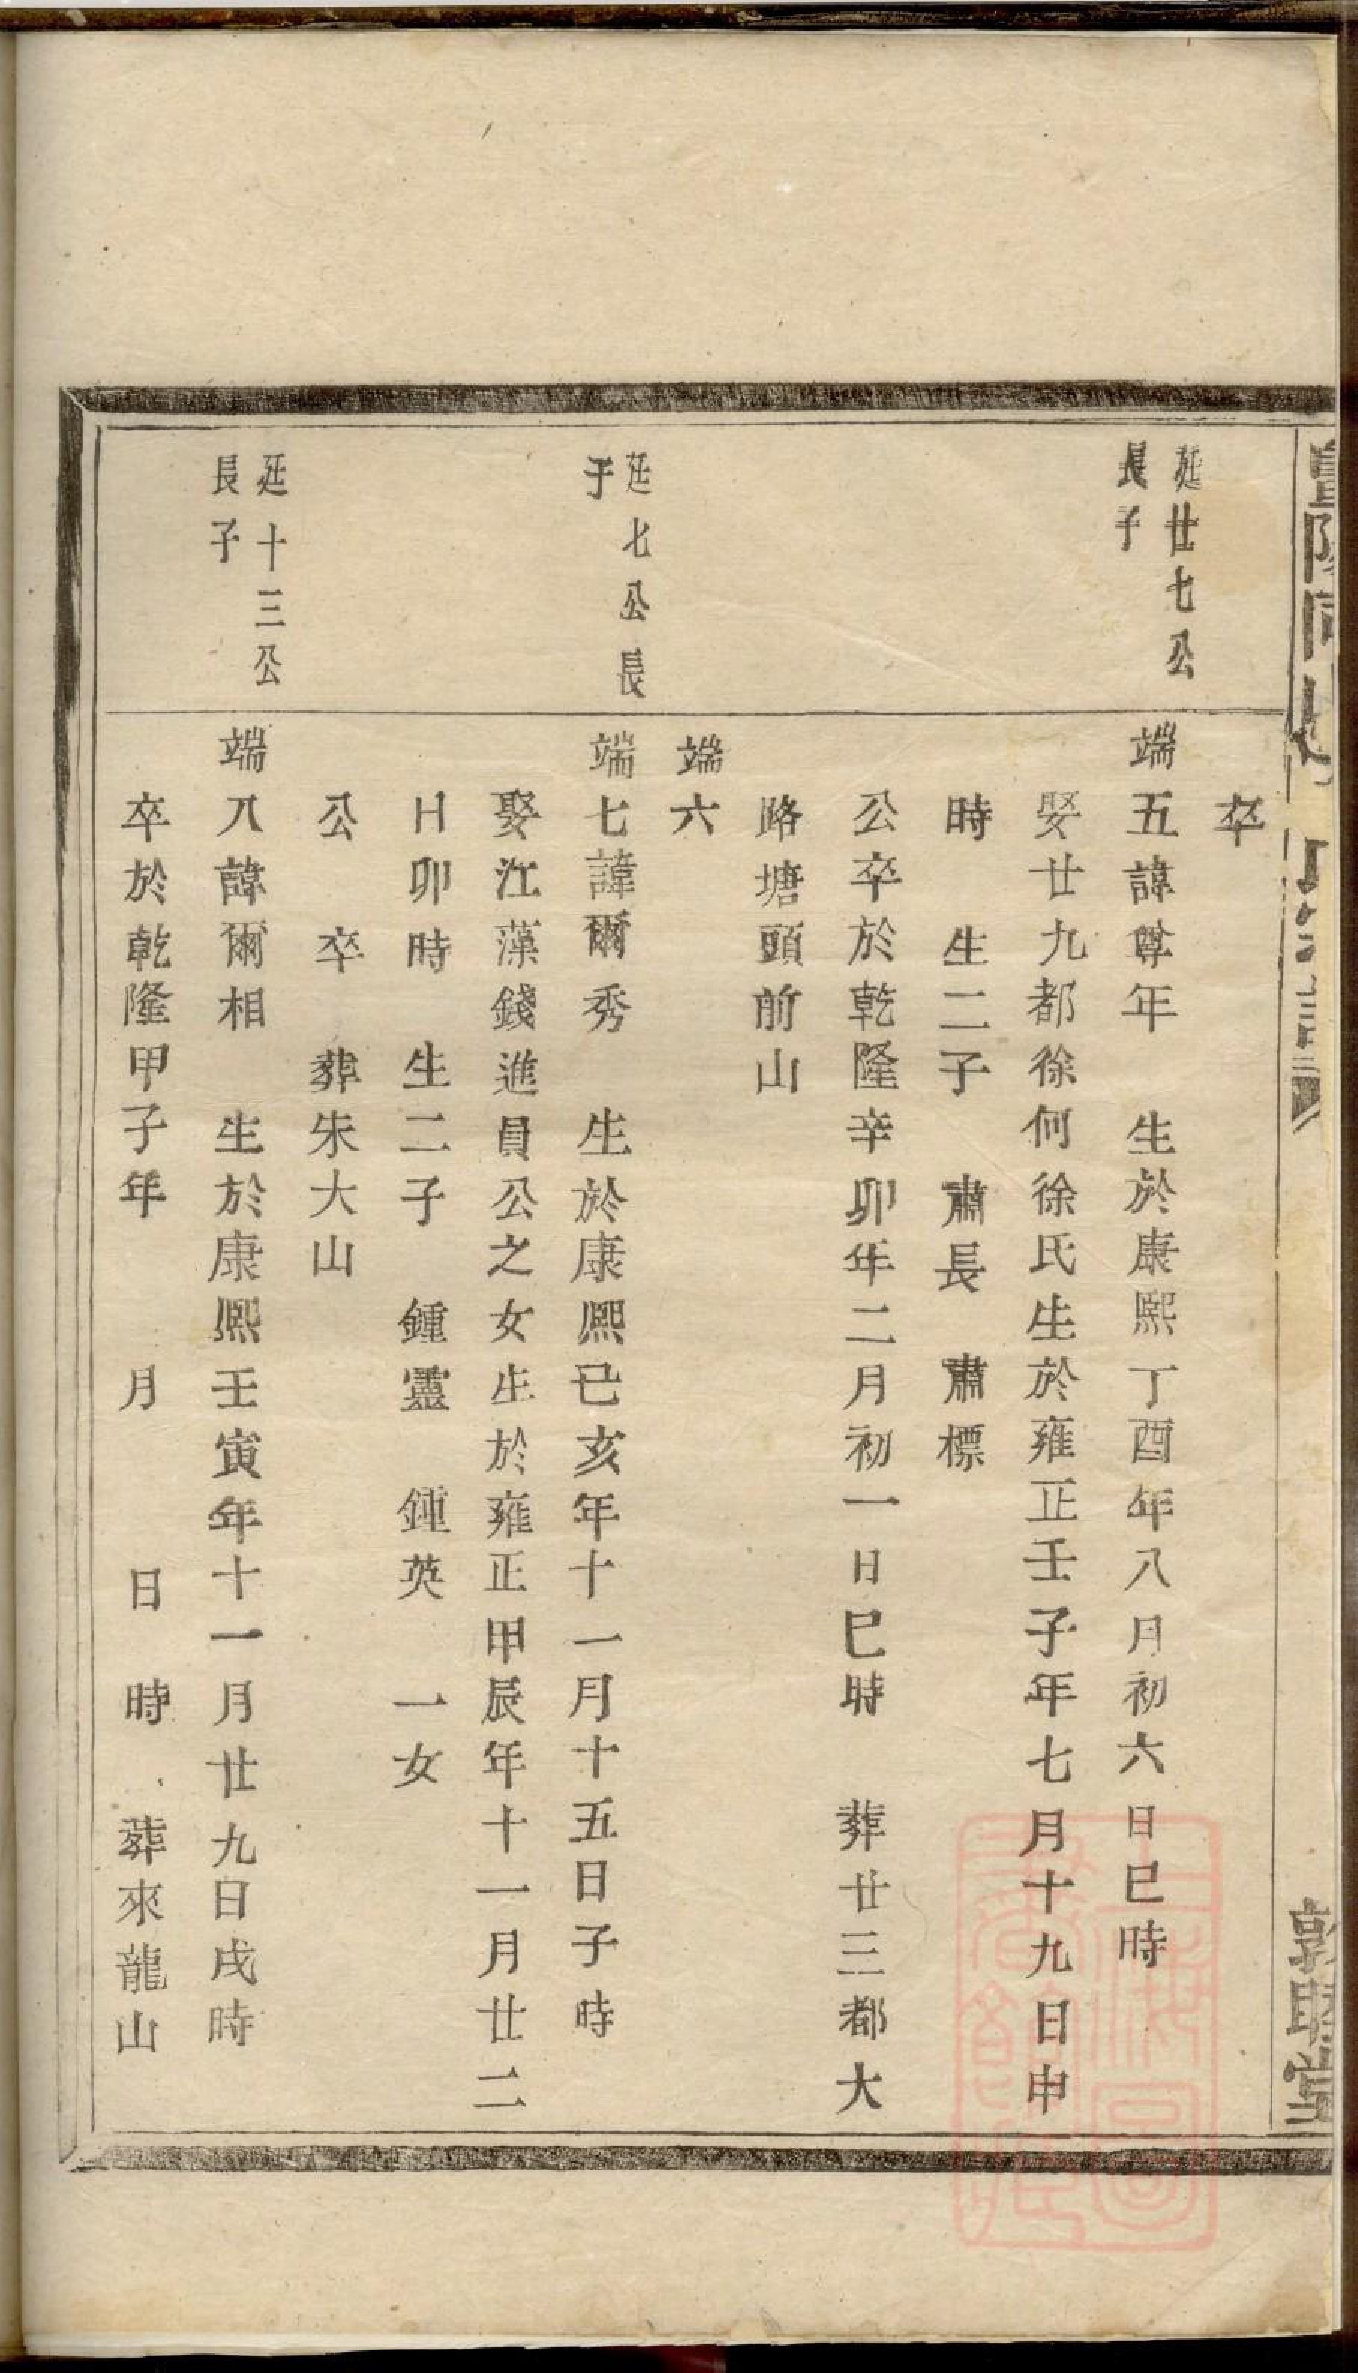 敦睦堂
卒
延廿七公
長子
端五諱尊年　生於康熙丁酉年八月初六日巳時
娶廿九都徐何徐氏生於雍正壬子年七月十九日申
時　生二子　肅長　肅標
公卒於乾隆辛卯年二月初一日巳時　葬廿三都大
路塘頭前山
端六
延七公長
子
端七諱爾秀　生於康熙已亥年十一月十五日子時
娶江藻錢進員公之女生於雍正甲辰年十一月廿二
日卯時　生二子　鍾靈　鍾英　一女
公　卒　葬朱大山
延十三公
長子
端八諱爾相　生於康熙壬寅年十一月廿九日戌時
卒於乾隆甲子年　月　日　時　葬來龍山
上海圖書館藏